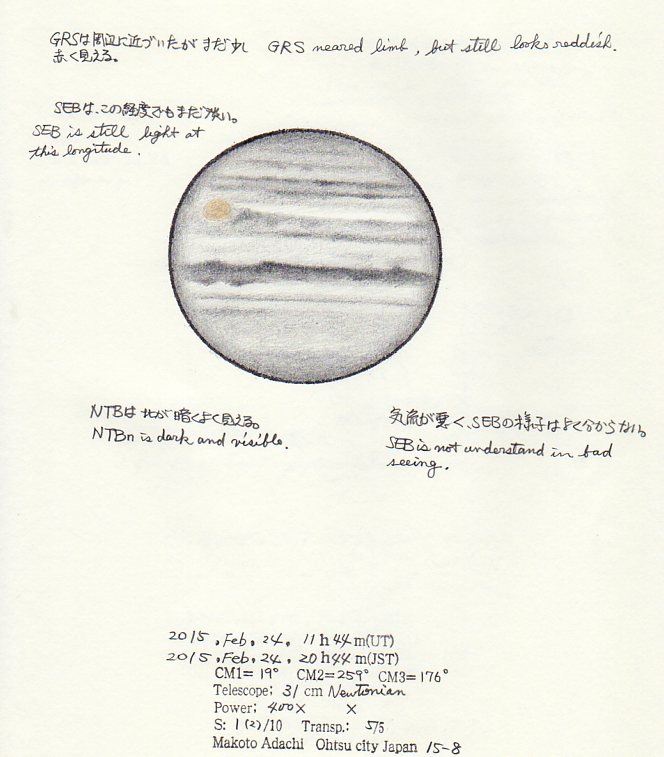 GRSは周辺に近づいたがまだ少し GRS neared limb, but still looks reddish.
赤く見える。
SEBは、この経度でもまだ淡い。
SEB is still light at
this longitude.
NTBは北が暗くよく見える。
NTBn is dark and visible.
気流が悪く、SEBの様子はよく分からない。
SEB is not understand in bad
seeing.
2015, Feb, 24, 11h44m(UT)
2015, Feb, 24, 20h44m(JST)
CM1= 19° CM2=259° CM3=176°
Telescope; 31 cm Newtonian
Power; 400× ×
S: 1(2)/10 Transp.: 5/5
Makoto Adachi Ohtsu city Japan 15-8